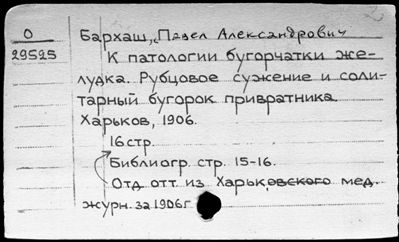 О
29525
Бархаш, Павел Александрович
К патологии бугорчатки же-
лудка. Рубцовое сужение и соли-
тарный бугорок привратника.
Харьков, 1906.
16 стр.
Библиогр. стр. 15-16.
Отд. отт. из Харьковского мед.
журн. за 1906 г